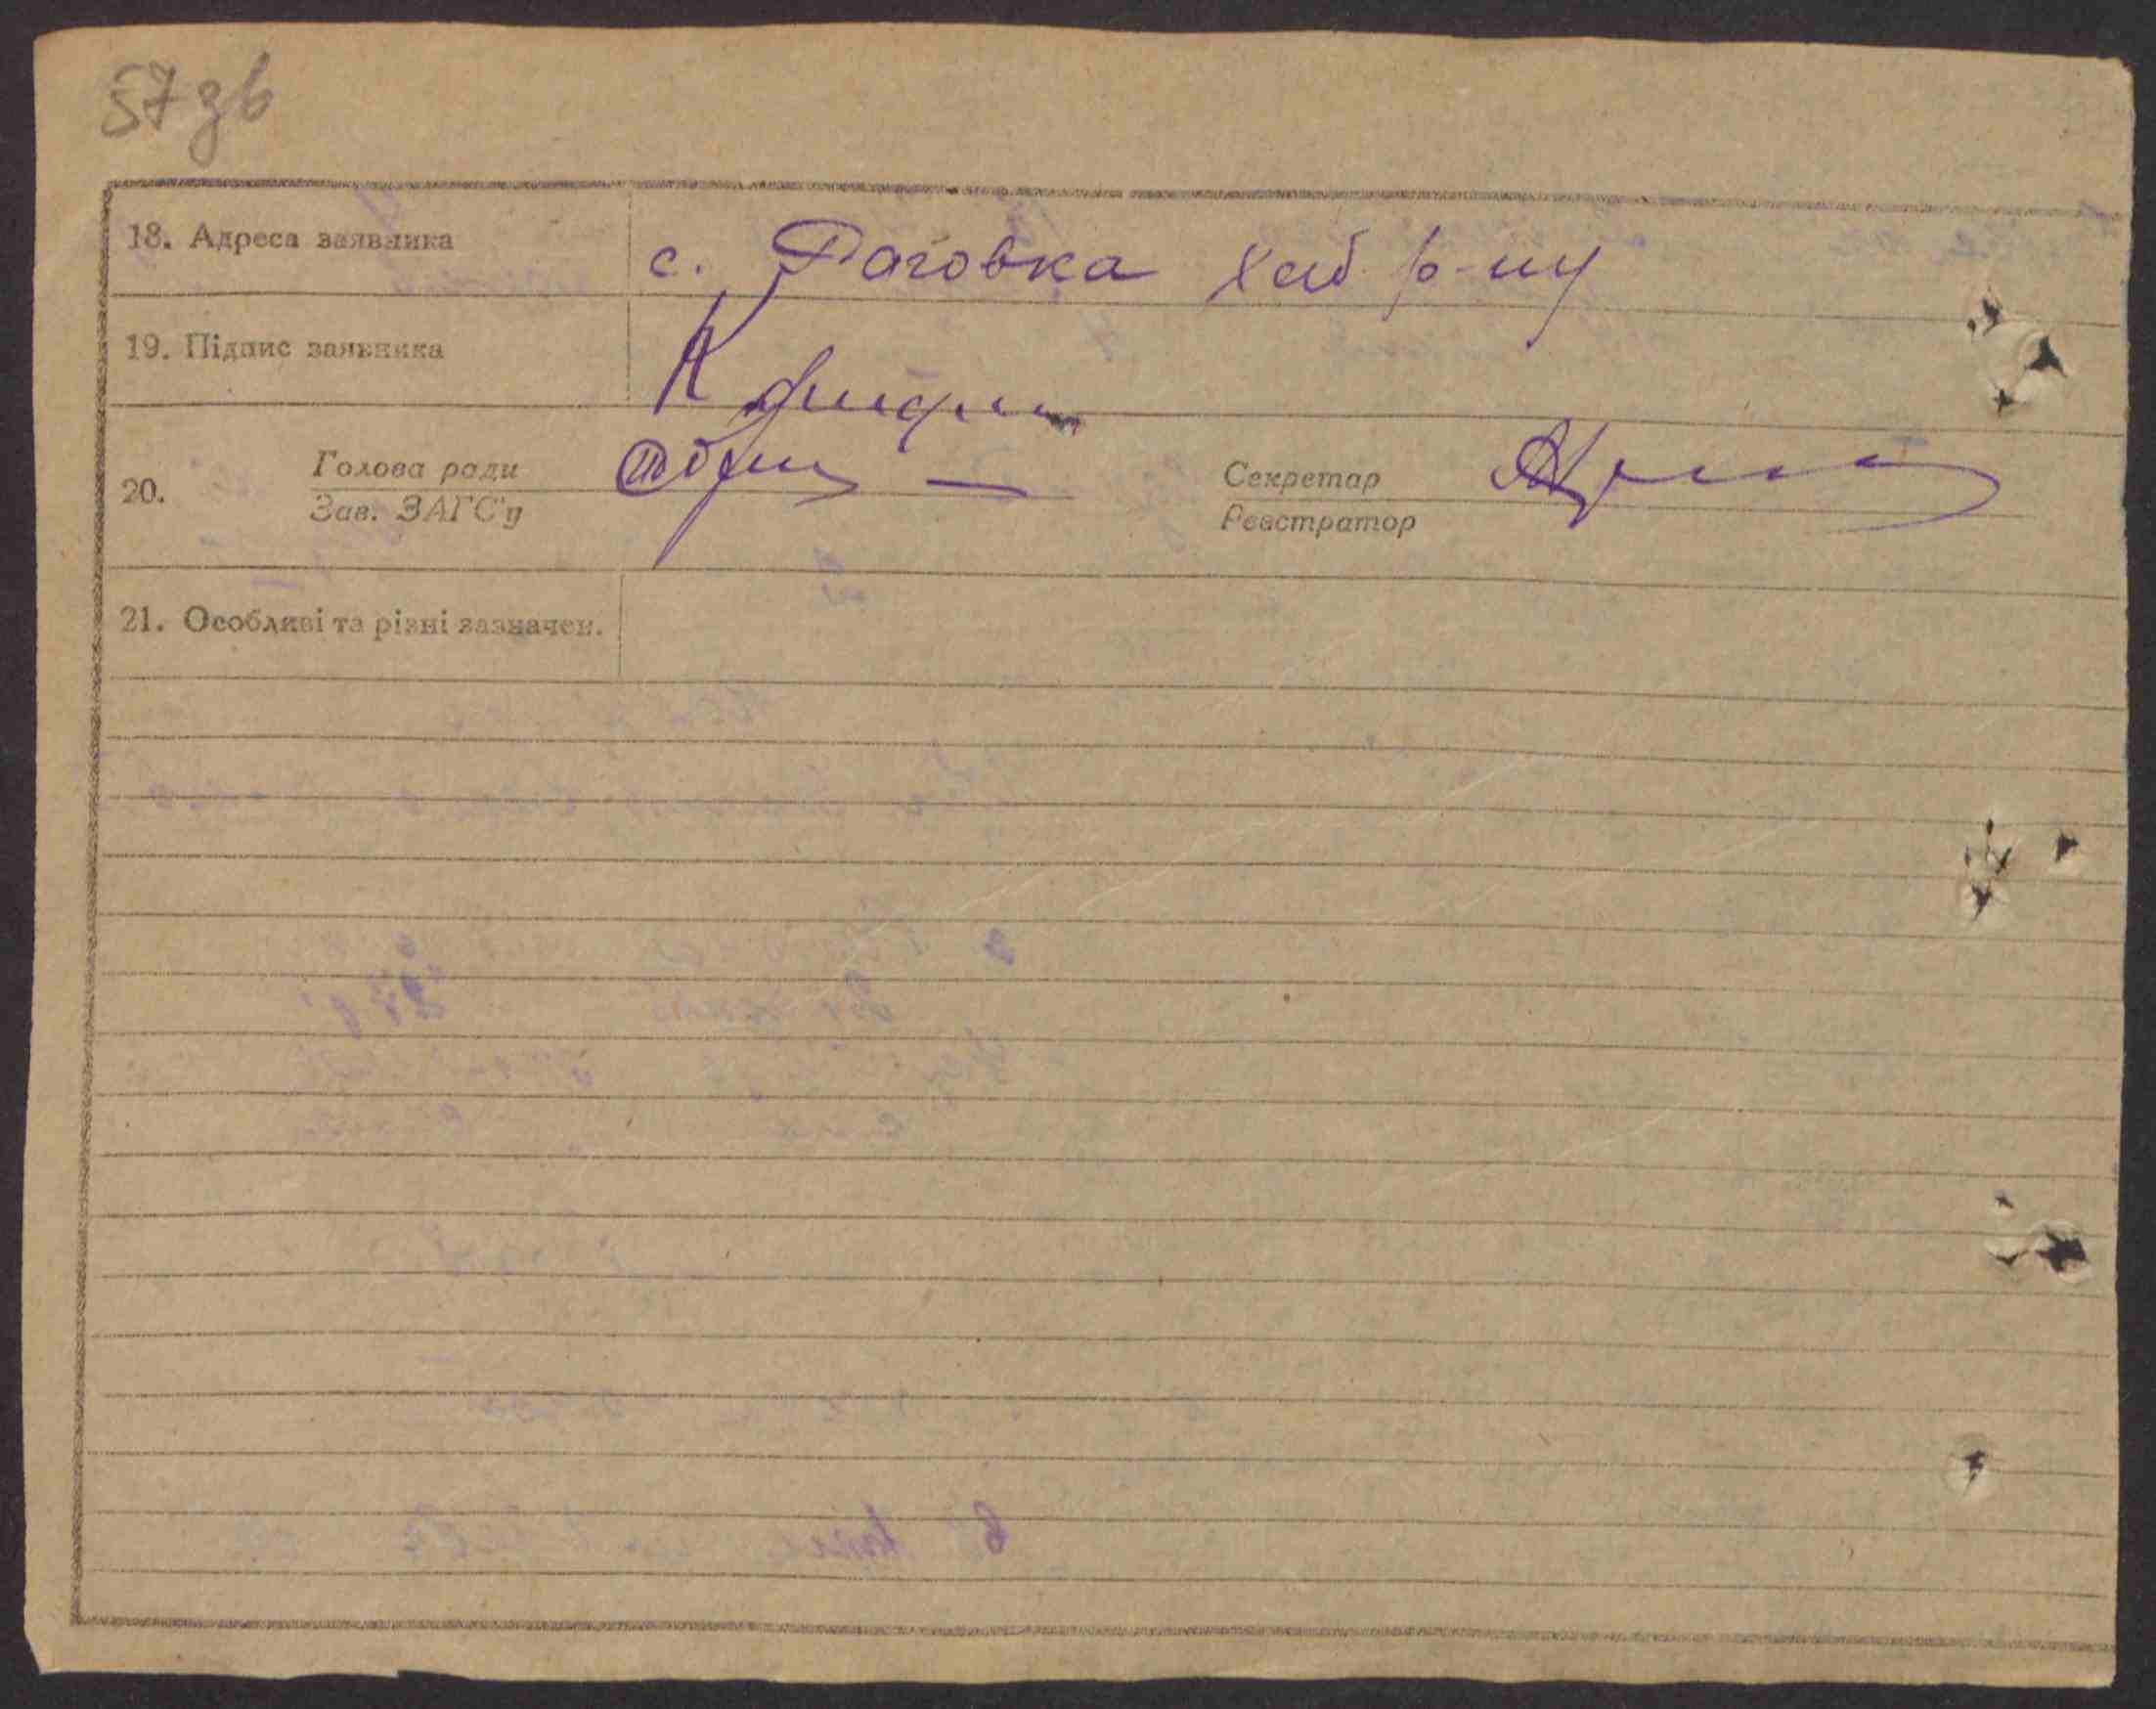 57 зв
18. Адреса заявника с. Раговка Хаб. р-ну
19. Підпис заявника
20. Голова ради Секретар
Зав. ЗАГС'у Реєстратор
21. Особливі та різні зазначен.